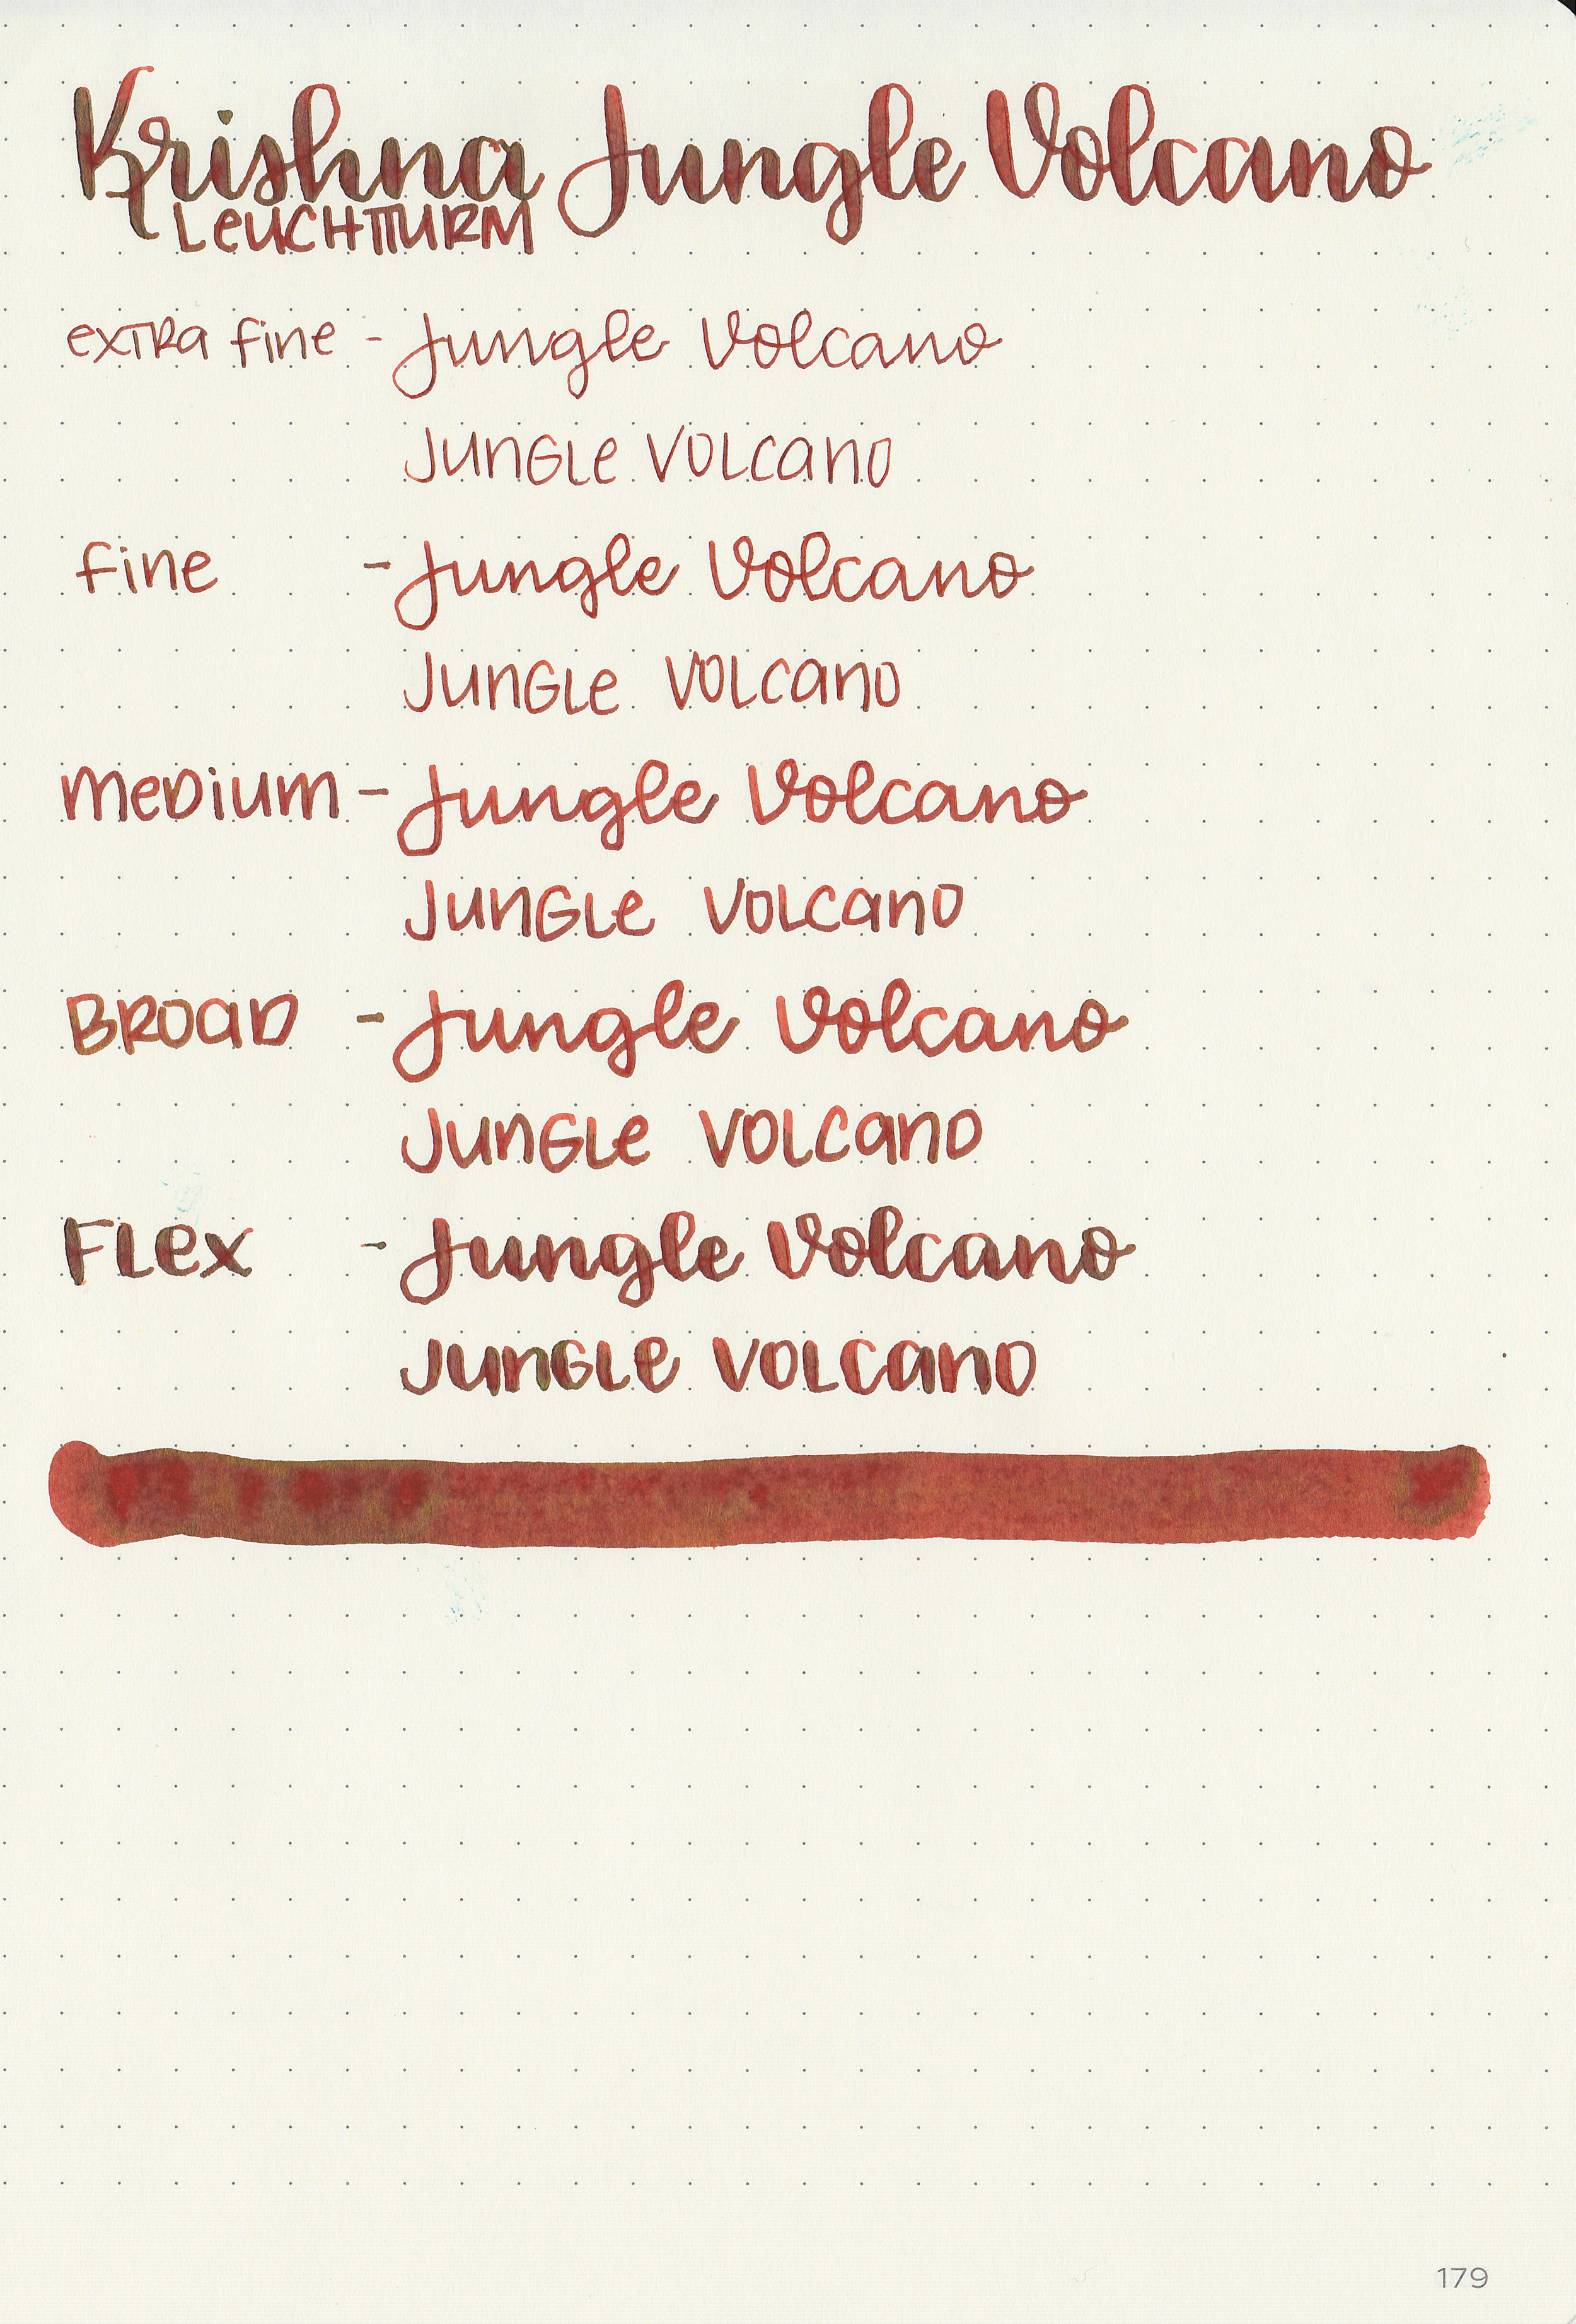 Krishna Jungle Volcano
LEUCHTTURM
exTRa fine - Jungle Volcano
JUNGLe VOLcano
fine - Jungle Volcano
JUNGLe VOLcano
meDium - Jungle Volcano
JUNGLe VOLcano
BROaD - Jungle Volcano
JUNGLe VOLcano
FLex - Jungle Volcano
JUNGLe VOLcano
179